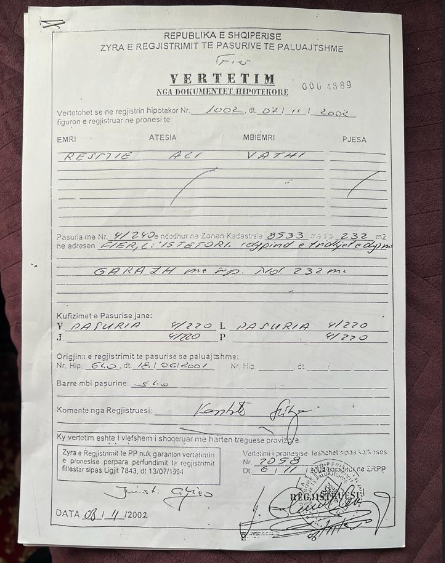 REPUBLIKA E SHQIPERISE
ZYRA E REGJISTRIMIT TE PASURIVE TE PALUAJTSHME
VERTETIM
NGA DOKUMENTET HIPOTEKORE
Vertetohet se ne regjistrin hipotekor Nr. 1002, dt 07/11/2002
figuron e regjistruar ne pronesi te
EMRI ATESIA MBIEMRI PJESA
RESMIE ALI VATHI
Pasuria me Nr. 4/240 e ndodhur ne Zonen Kadastrale 8533 me sip. 232 m2
ne adresen FIER, L. 1 STETORI
GARAZH me sip. Nd 232 m
Kufizimet e Pasurise jane:
V PASURIA 4/220 L PASURIA 4/220
J 4/220 P 4/220
Origjin e regjistrimit te pasurise se paluajtshme:
Nr. Hip. 640, dt 18/06/2001 Nr Hip dt
Barre mbi pasurine
Komente nga Regjistruesi
Ky vertetim eshte i vlefshem i shoqeruar me harten treguese provizore
Zyra e Regjistrimit te PP nuk garanton vertetimin
e pronesise perpara perfundimit te regjistrimit
fillestar sipas Ligjit 7843, dt 13/07/1994
Vertetimi i pronesise leshohet sipas
Nr. 2098
REGJISTRUESI
DATA 08/11/2002